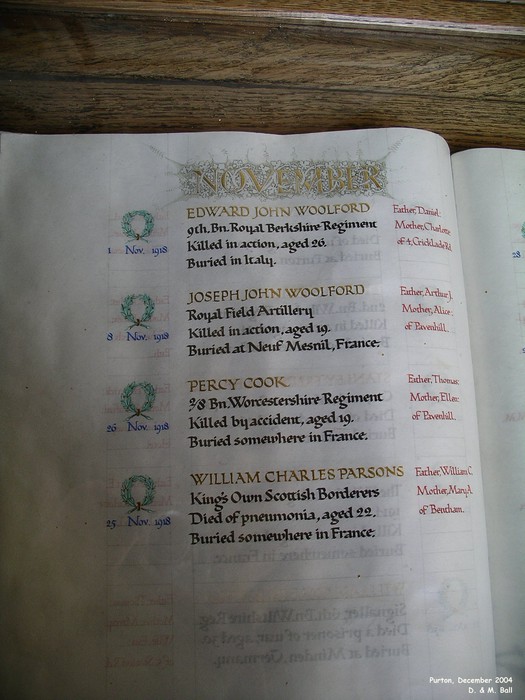 NOVEMBER
EDWARD JOHN WOOLFORD
9th. Bn. Royal Berkshire Regiment
Killed in action, aged 26.
Buried in Italy.
1 Nov. 1918
Father, Daniel.
Mother, Charlotte
of 4, Cricklade Rd.
JOSEPH JOHN WOOLFORD
Royal Field Artillery
Killed in action, aged 19.
Buried at Neuf Mesnil, France.
8 Nov. 1918
Father, Arthur J.
Mother, Alice.
of Pavenhill.
PERCY COOK
2/8 Bn. Worcestershire Regiment
Killed by accident, aged 19.
Buried somewhere in France.
26 Nov. 1918
Father, Thomas
Mother, Ellen
of Pavenhill.
WILLIAM CHARLES PARSONS
King's Own Scottish Borderers
Died of pneumonia, aged 22.
Buried somewhere in France.
25 Nov. 1918
Father, William C.
Mother, Mary A.
of Bentham.
28
Purton, December 2004
D. & M. Ball